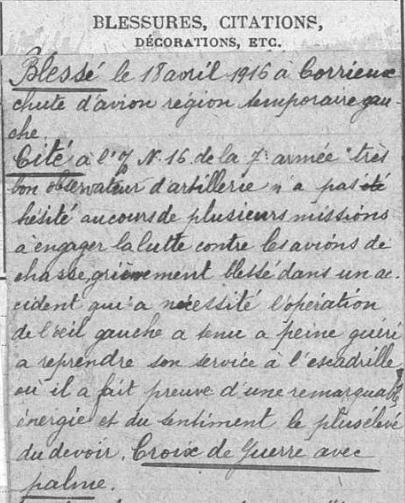 BLESSURES, CITATIONS,
DÉCORATIONS, ETC.
Blessé le 18 avril 1916 à Corrieux
chute d'avion région temporaire gau-
che.
Cité à l'O/ N. 16 de la 7e armée "très
bon observateur d'artillerie n'a pas
hésité au cours de plusieurs missions
à engager la lutte contre les avions de
chasse, grièvement blessé dans un ac-
cident qui a nécessité l'opération
de l'œil gauche a tenu a peine guéri
a reprendre son service à l'escadrille
où il a fait preuve d'une remarquable
énergie et du sentiment le plus élevé
du devoir. Croix de Guerre avec
palme.